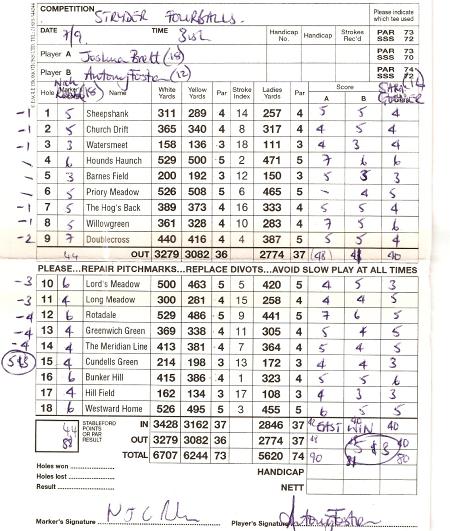 COMPETITION STRYDER FOURBALLS.
Please indicate which tee used
DATE 7/9 TIME 3 Handicap No. Handicap Strokes Rec'd PAR 73 SSS 72
Player A Joshua Brett (18) PAR 73
Player B Antony Foster (12) PAR 74 SSS 72
Hole Marker's Name White Yards Yellow Yards Par Stroke Index Ladies Yards Par Score A B
-1 1 5 Sheepshank 311 289 4 14 257 4 5 5 4
-1 2 5 Church Drift 365 340 4 8 317 4 4 5 4
-1 3 3 Watersmeet 158 136 3 18 111 3 4 3 4
4 6 Hounds Haunch 529 500 5 2 471 5 7 6 6
5 3 Barnes Field 200 192 3 12 150 3 5 3 3
6 5 Priory Meadow 526 508 5 6 465 5 - 4 5
-1 7 5 The Hog's Back 389 373 4 16 333 4 5 5 4
-1 8 5 Willowgreen 361 328 4 10 283 4 7 5 6
-2 9 7 Doublecross 440 416 4 4 387 5 5 5 4
44 OUT 3279 3082 36 2774 37 (48) 40
PLEASE...REPAIR PITCHMARKS...REPLACE DIVOTS...AVOID SLOW PLAY AT ALL TIMES
-3 10 6 Lord's Meadow 500 463 5 5 420 5 4 5 3
-3 11 4 Long Meadow 300 281 4 15 258 4 4 4 5
-4 12 6 Rotadale 529 486 5 9 441 5 7 6 5
-4 13 4 Greenwich Green 369 338 4 11 305 4 5 4 5
-4 14 4 The Meridian Line 413 381 4 7 364 4 5 4 5
5&3 15 4 Cundells Green 214 198 3 13 172 3 4 4 3
16 6 Bunker Hill 415 386 4 1 323 4 5 5 6
17 4 Hill Field 162 134 3 17 108 3 4 3 3
18 6 Westward Home 526 495 5 3 455 5 6 5 5
STABLEFORD POINTS OR PAR RESULT 44 IN 3428 3162 37 2846 37 42 EAST WIN 40
OUT 3279 3082 36 2774 37 48 5 & 3 40
TOTAL 6707 6244 73 5620 74 90 80
Holes won HANDICAP
Holes lost
Result NETT
Marker's Signature Player's Signature Antony Foster